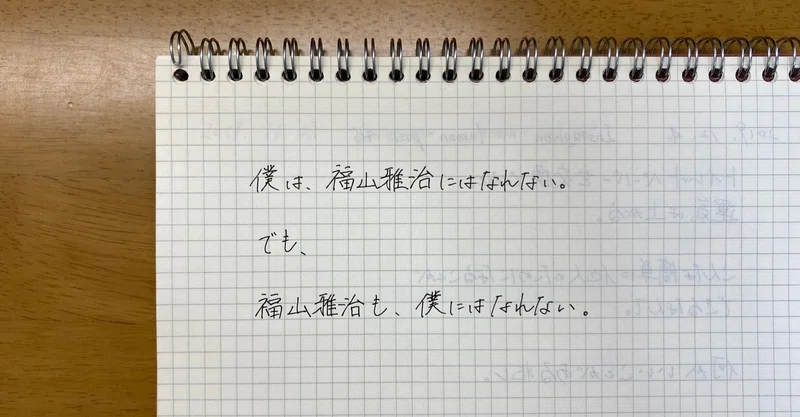 僕は、福山雅治にはなれない。
でも、
福山雅治も、僕にはなれない。